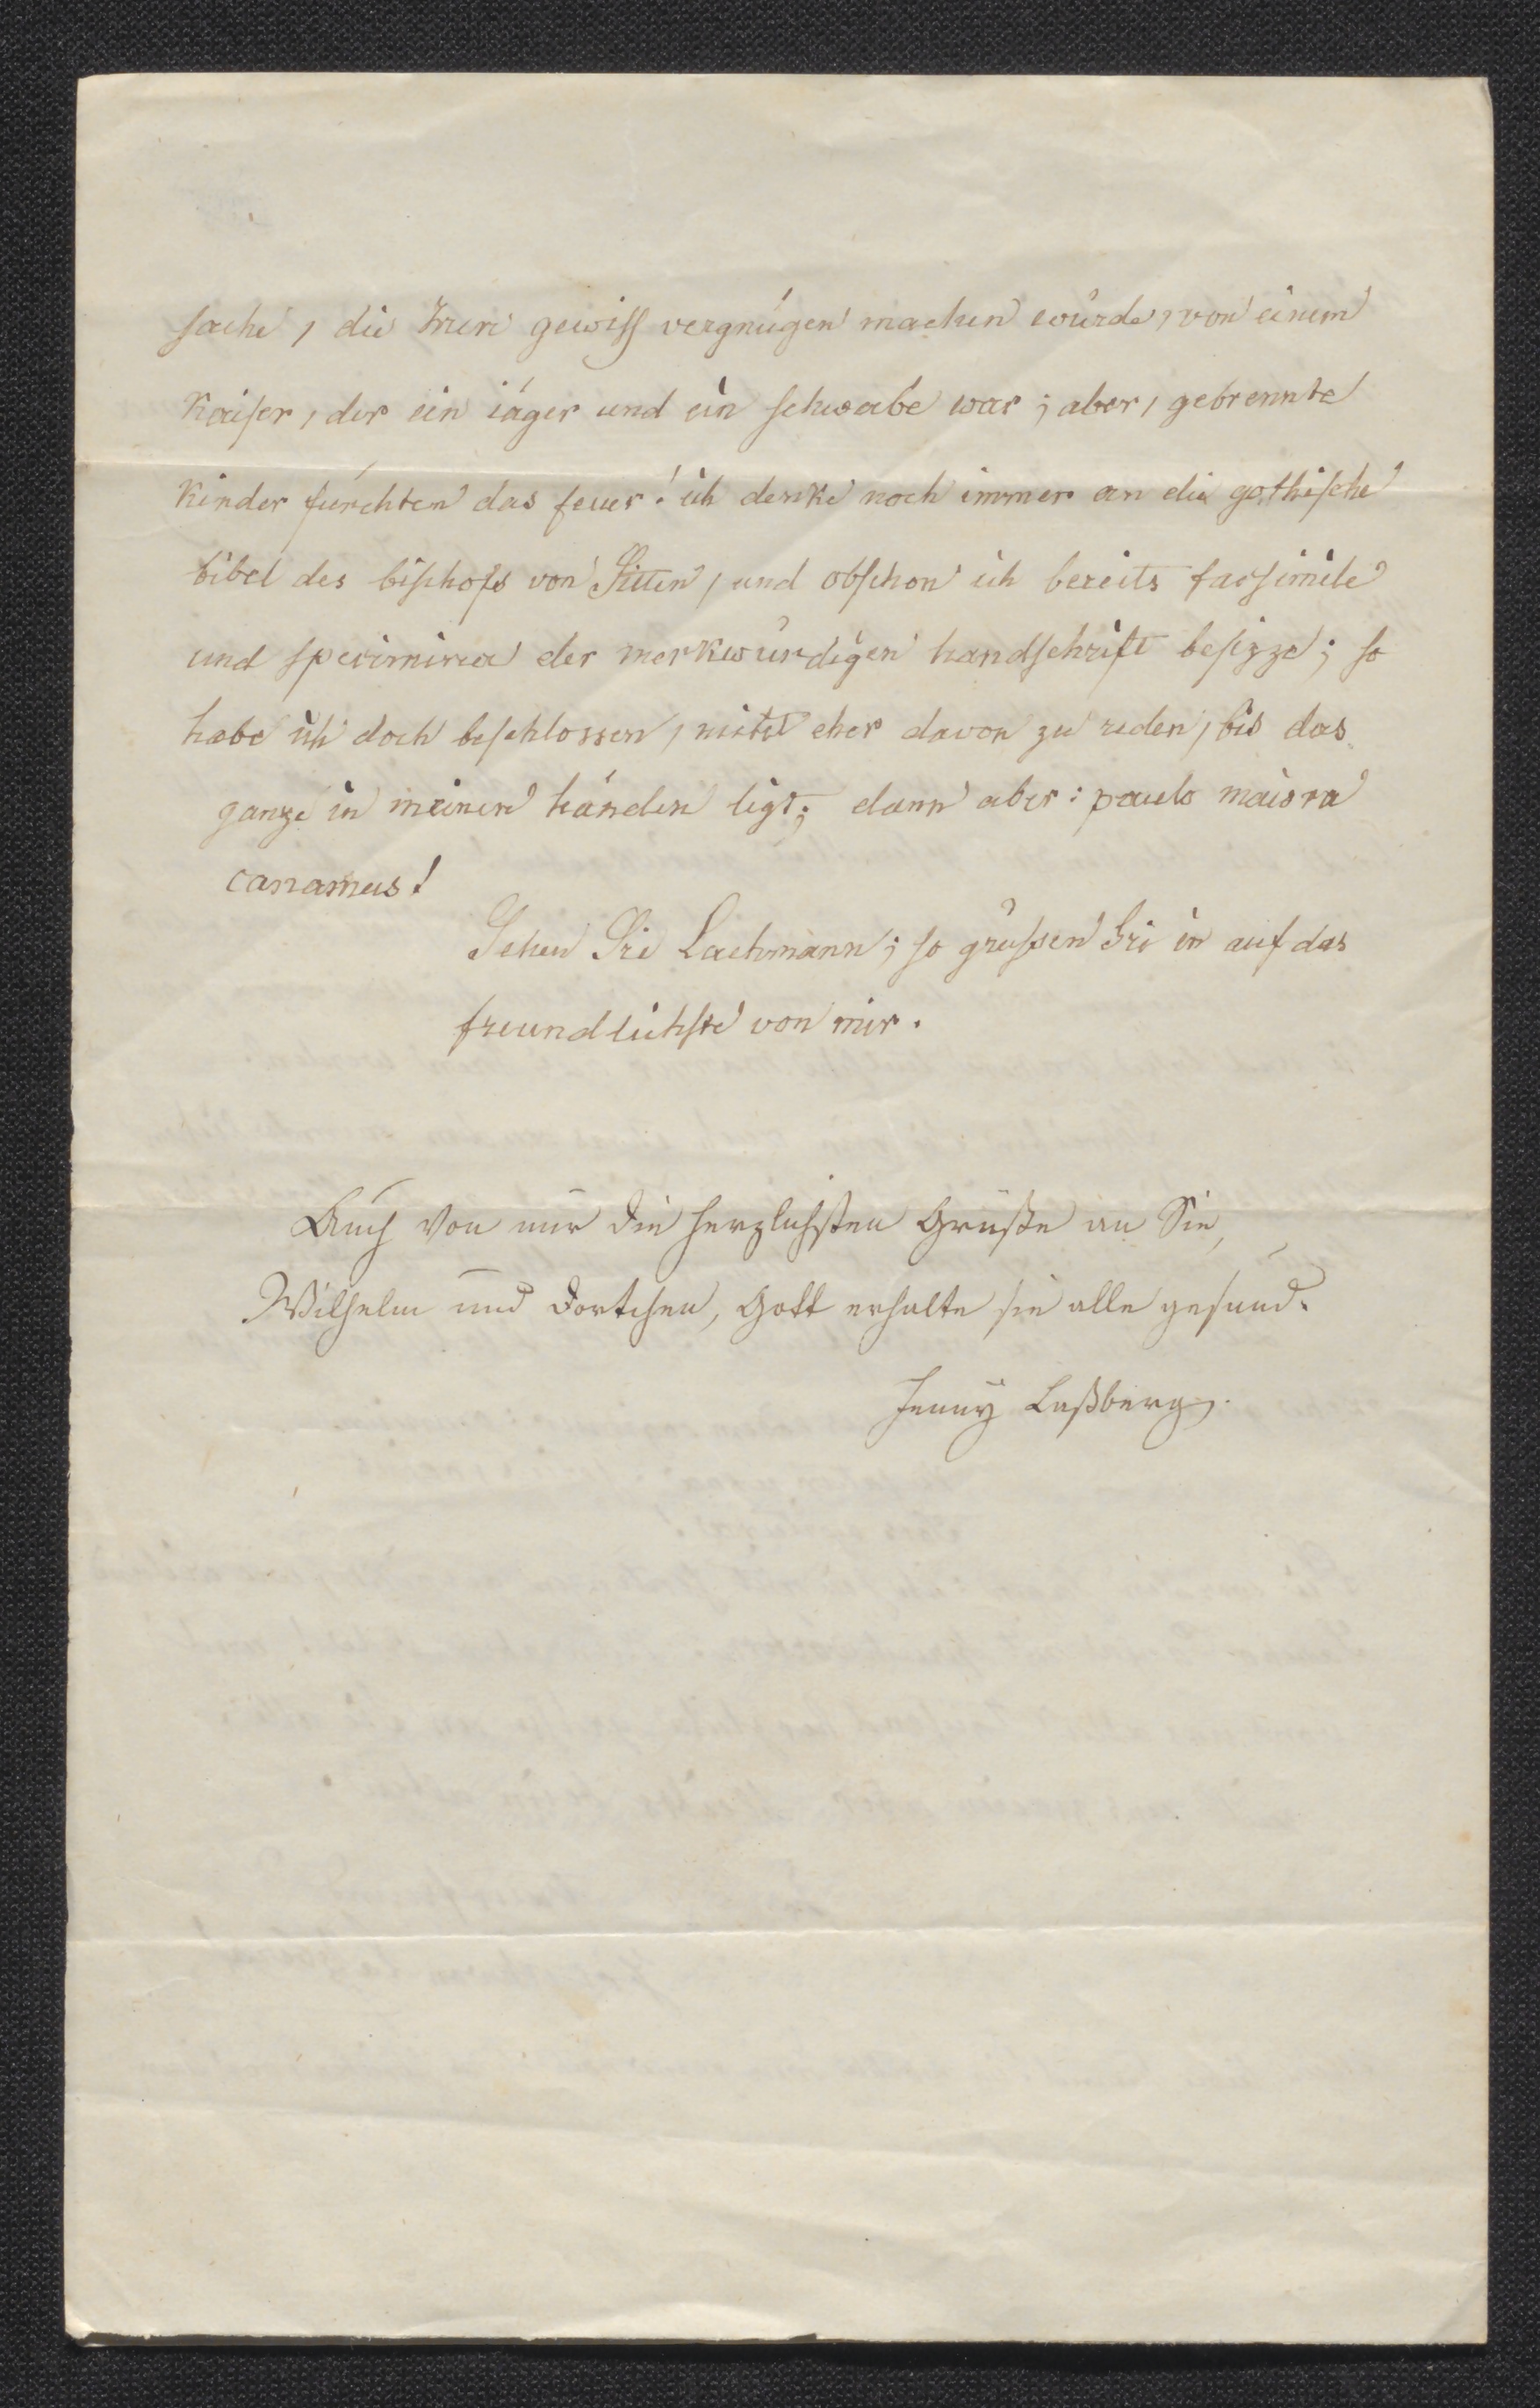 sache, die Inen gewiss vergnügen machen würde, von einem
Kaiser, der ein iäger und ein schwabe war; aber, gebrennte
Kinder fürchten das feuer! ich denke noch immer an die gothische
bibel des bischofs von Sitten, und obschon ich bereits facsimile
und specimina der merkwürdigen handschrift besizze; so
habe ich doch beschlossen, nicht eher davon zu reden, bis das
ganze in meinen händen ligt; dann aber: paulo maiora
canamus!
Sehen Sie Lachmann; so grüssen Sie in auf das
freundlichste von mir.
Auch von mir die herzlichsten Grüße an Sie,
Wilhelm und Dortchen, Gott erhalte sie alle gesund.
Jenny Laßberg.